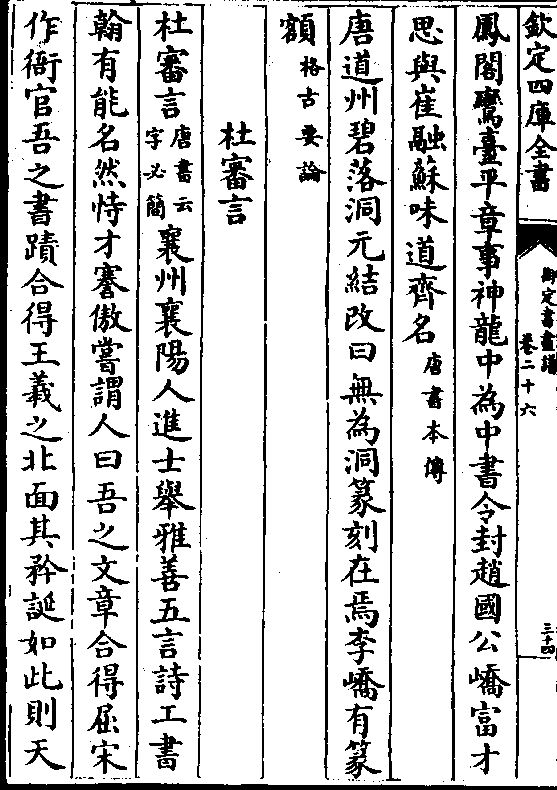 欽定四庫全書
御定書畫譜
卷二十六
三十四
鳳閣鸞臺平章事神龍中為中書令封趙國公嶠富才
思與崔融蘇味道齊名唐書本傳
唐道州碧落洞元結改曰無為洞篆刻在焉李嶠有篆
額格古要論
杜審言
杜審言唐書云字必簡襄州襄陽人進士舉雅善五言詩工書
翰有能名然恃才謇傲嘗謂人曰吾之文章合得屈宋
作衙官吾之書蹟合得王羲之北面其矜誕如此則天